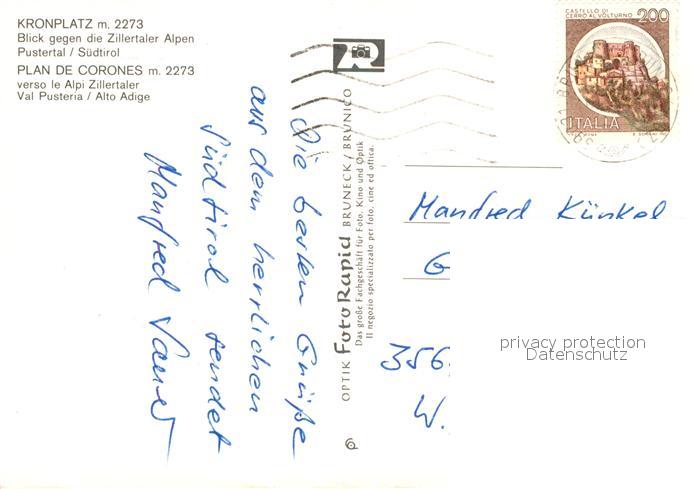 KRONPLATZ m. 2273
Blick gegen die Zillertaler Alpen
Pustertal / Südtirol
PLAN DE CORONES m. 2273
verso le Alpi Zillertaler
Val Pusteria / Alto Adige
Die besten Grüße
aus dem herrlichen
Südtirol sendet
Manfred
OPTIK Foto Rapid BRUNECK / BRUNICO
Das große Fachgeschäft für Foto, Kino und Optik
Il negozio specializzato per foto, cine ed ottica.
CASTELLO DI
CERRO AL VOLTURNO
200
ITALIA
Manfred Künkel
G
356
W.
privacy protection
Datenschutz